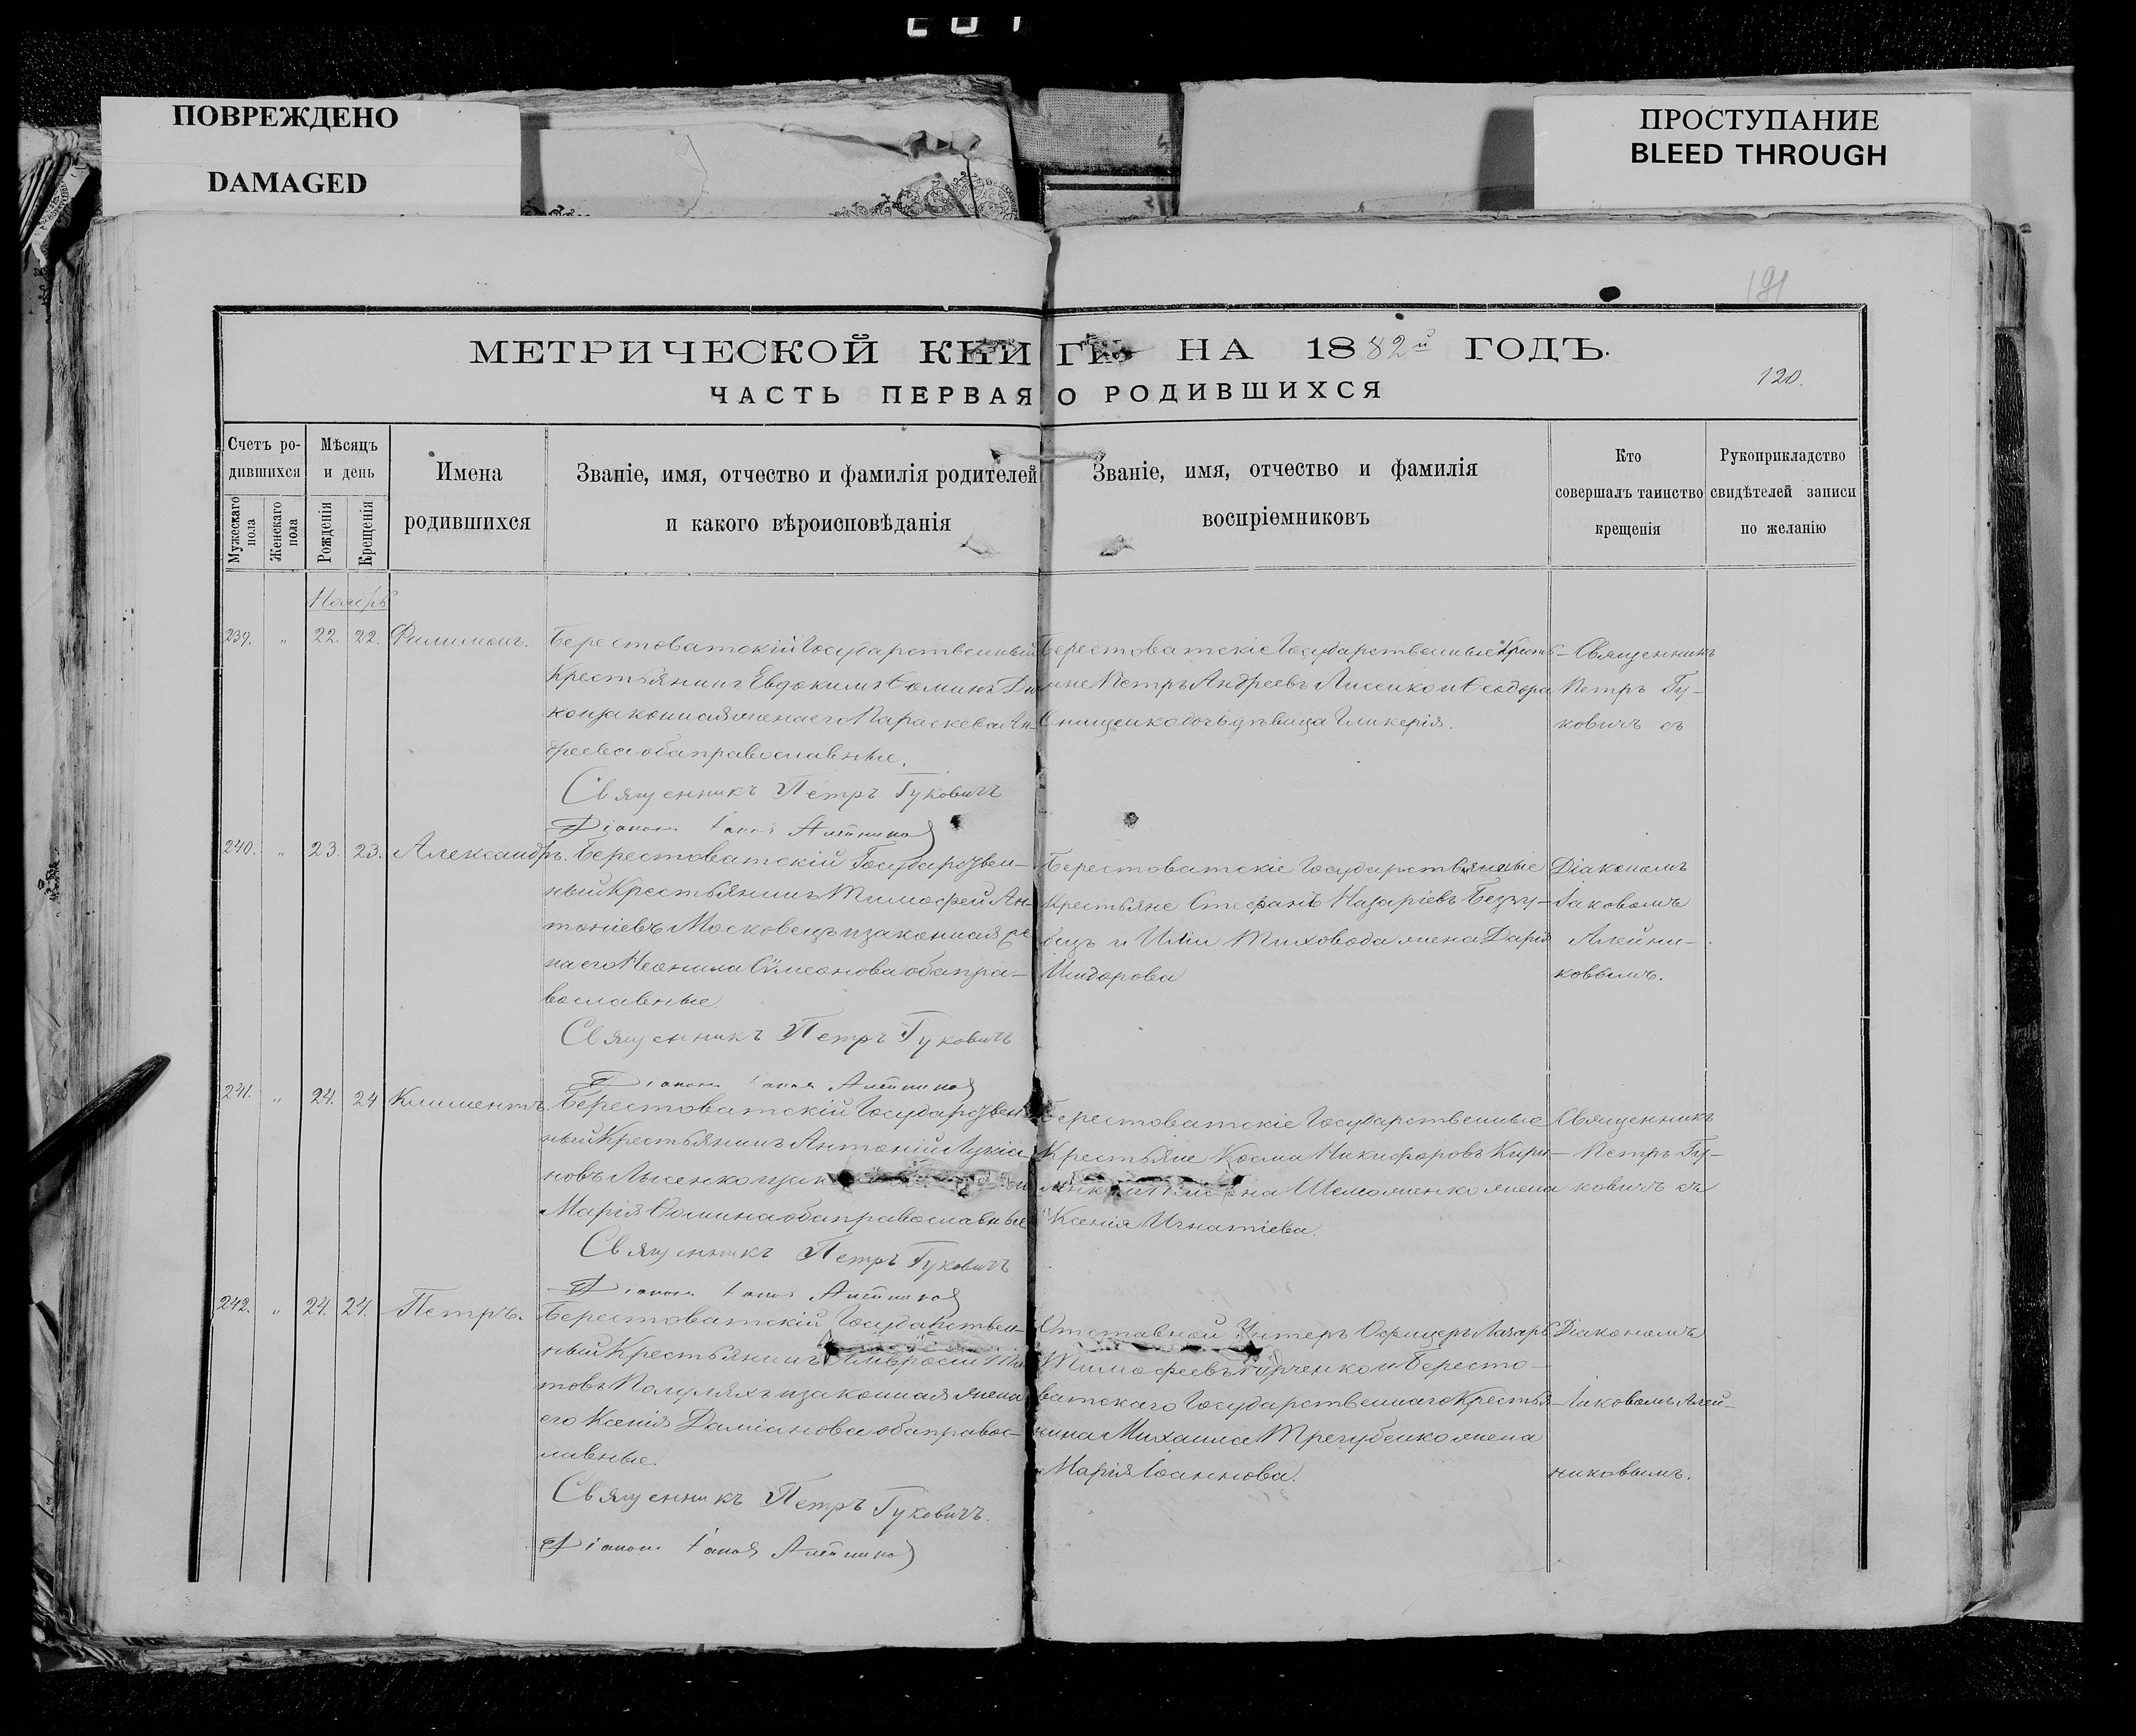 ПОВРЕЖДЕНО
DAMAGED
ПРОСТУПАНИЕ
BLEED THROUGH
191
МЕТРИЧЕСКОЙ КНИГИ НА 1882й ГОДЪ.
ЧАСТЬ ПЕРВАЯ О РОДИВШИХСЯ
120.
Счетъ родившихся
Мужескаго пола
Женскаго пола
Мѣсяцъ и день
Рожденія
Крещенія
Имена родившихся
Званіе, имя, отчество и фамилія родителей
и какого вѣроисповѣданія
Званіе, имя, отчество и фамилія
воспріемниковъ
Кто
совершалъ таинство
крещенія
Рукоприкладство
свидѣтелей записи
по желанію
Ноябрь
239. „ 22. 22. Филимонъ.
Берестоватскій Государственный
Крестьянинъ Евдокимъ Ѳоминъ
законная жена его Параскева Ан-
дреева оба православные.
Священникъ Петръ Гуковичъ
Діаконъ Іаковъ Алейниковъ
Берестоватскіе Государственные Кресть-
яне Петръ Андреевъ Лисенко и Ѳеодора
Онищенко дочь дѣвица Гликерія.
Священникъ
Петръ Гу-
ковичъ съ
240. „ 23. 23. Александръ.
Берестоватскій Государствен-
ный Крестьянинъ Тимофей Ан-
тоніевъ Московецъ и законная же
на его Неонила Симеонова оба пра-
вославные.
Священникъ Петръ Гуковичъ
Діаконъ Іаковъ Алейниковъ
Берестоватскіе Государственные
Крестьяне Стефанъ Назаріевъ Беззу-
бецъ и Иліи Тиховода жена Дарія
Исидорова
Діакономъ
Іаковомъ
Алейни-
ковымъ.
241. „ 24. 24 Климентъ.
Берестоватскій Государствен-
ный Крестьянинъ Антоній Лукіа-
новъ Лысенко и зак
Марія Ѳомина оба православные
Священникъ Петръ Гуковичъ
Діаконъ Іаковъ Алейниковъ
Берестоватскіе Государственные
Крестьяне Косма Никифоровъ Кири-
на Шеможенко жена
Ксенія Игнатіева.
Священникъ
Петръ Гу-
ковичъ съ
242. „ 24. 24. Петръ.
Берестоватскій Государствен-
ный Крестьянинъ Амвросій Ти-
товъ Полулях и законная жена
его Ксенія Даміанова оба правос-
лавные.
Священникъ Петръ Гуковичъ.
Діаконъ Іаковъ Алейниковъ
Отставной Унтеръ Офицеръ Лазарь
Тимофеевъ и Бересто-
ватскаго Государственнаго Крестья-
нина Михаила Трегубенко жена
Марія Іоаннова.
Діакономъ
Іаковомъ Алей-
никовымъ.